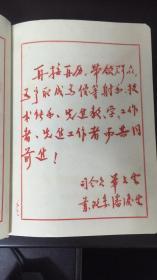 再接再厉，带领所众，
争取成为优等射手、技
术能手、先进教学工作
者、先进工作者而共同
前进！
司令员